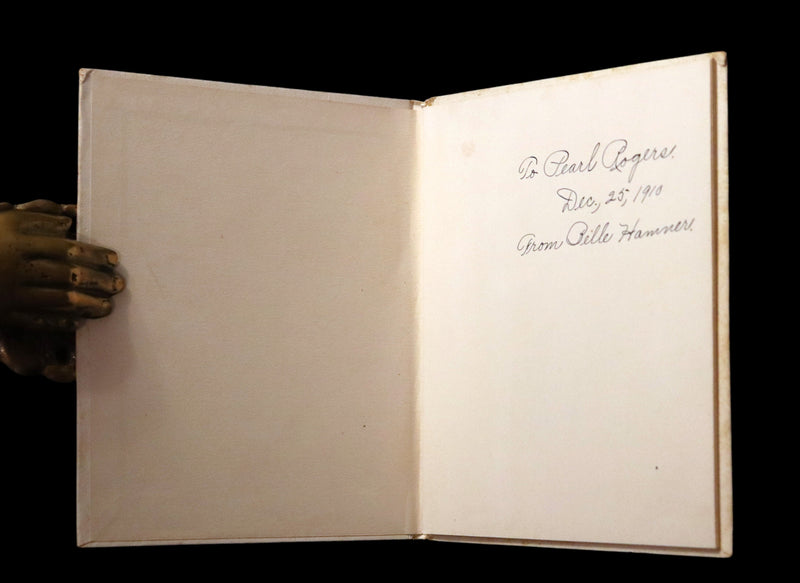 To Pearl Rogers.
Dec., 25, 1910
From Belle Hamner.